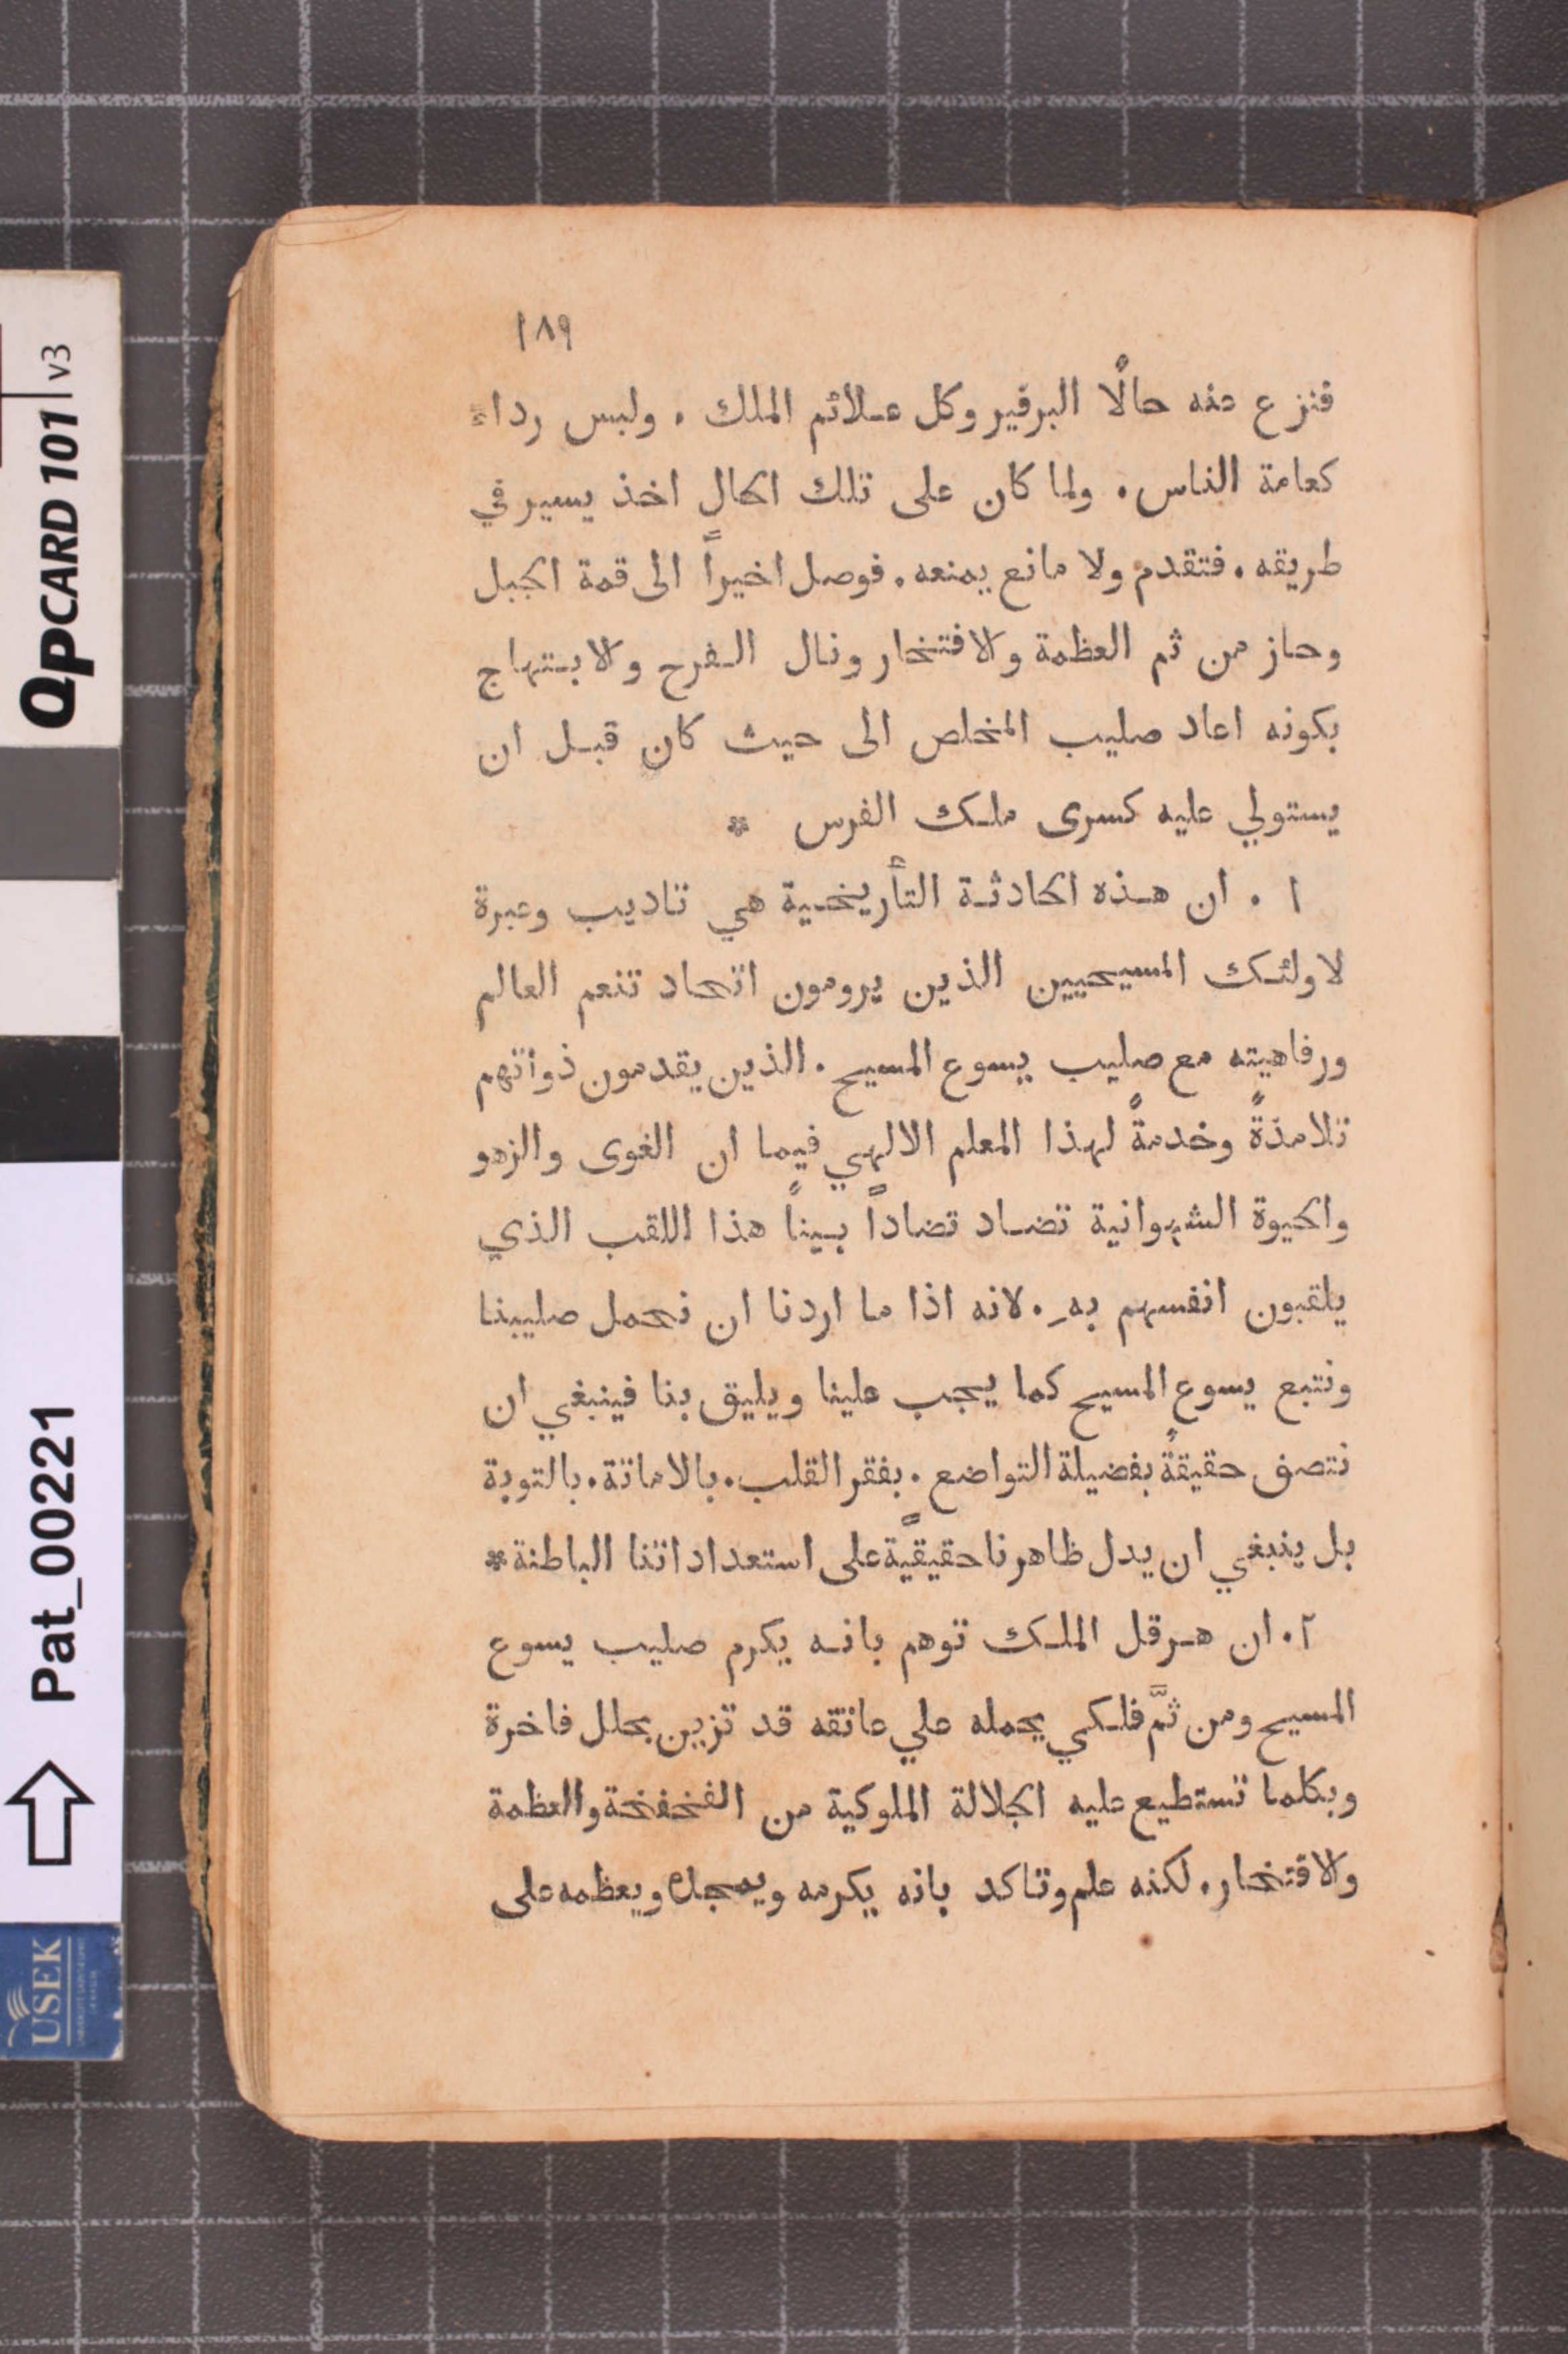 ١٨٩
فنزع منه حالًا البرفير وكل علائم الملك. ولبس رداءً
كعامة الناس. ولما كان على تلك الحال اخذ يسير في
طريقه. فتقدم ولا مانع يمنعه. فوصل اخيراً الى قمة الجبل
وحاز من ثم العظمة والافتخار ونال الفرح والابتهاج
بكونه اعاد صليب المخلص الى حيث كان قبل ان
يستولي عليه كسرى ملك الفرس *
١. ان هذه الحادثة التأريخية هي تاديب وعبرة
لاولئك المسيحيين الذين يرومون اتحاد تنعم العالم
ورفاهيته مع صليب يسوع المسيح. الذين يقدمون ذواتهم
تلامذةً وخدمةً لهذا المعلم الالهي فيما ان الغوى والزهو
والحيوة الشهوانية تضاد تضاداً بيناً هذا اللقب الذي
يلقبون انفسهم بهِ. لانه اذا ما اردنا ان نحمل صليبنا
ونتبع يسوع المسيح كما يجب علينا ويليق بنا فينبغي ان
نتصف حقيقةً بفضيلة التواضع. بفقر القلب. بالاماتة. بالتوبة
بل ينبغي ان يدل ظاهرنا حقيقيةً على استعداداتنا الباطنة *
٢. ان هرقل الملك توهم بانه يكرم صليب يسوع
المسيح ومن ثمَّ فلكي يحمله علي عاتقه قد تزين بحلل فاخرة
وبكلما تستطيع عليه الجلالة الملوكية من الفخفخة والعظمة
والافتخار. لكنه علم وتاكد بانه يكرمه ويمجده ويعظمه على
QPCARD 101 v3
Pat_00221
USEK